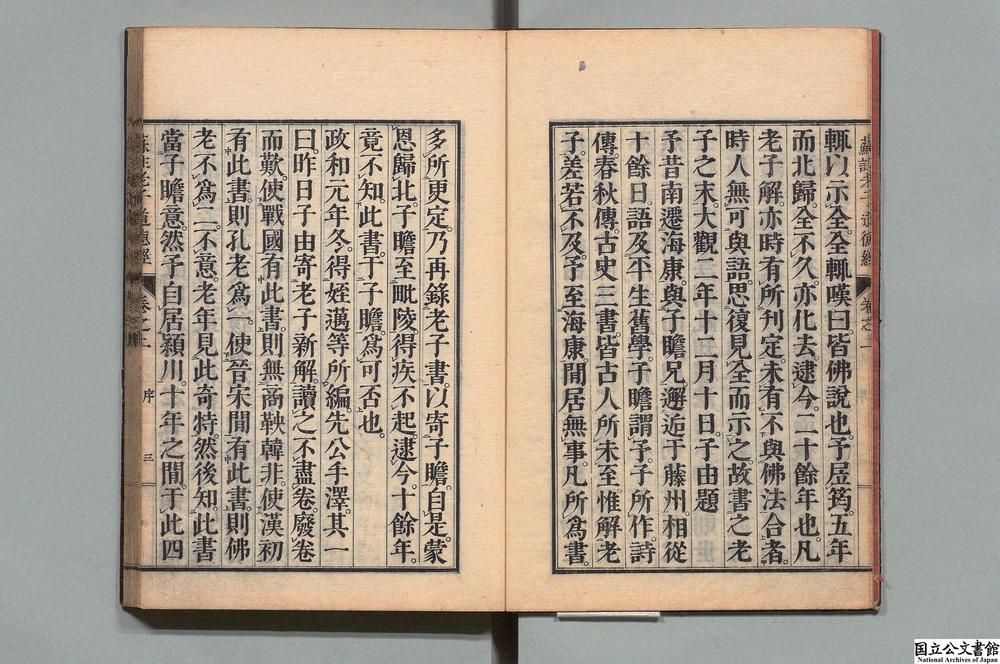 輒以示全全輒嘆曰皆佛說也予居筠五年
而北歸全不久亦化去逮今二十餘年也凡
老子解亦時有所刊定未有不與佛法合者
時人無可與語思復見全而示之故書之老
子之末大觀二年十二月十日子由題
予昔南遷海康與子瞻兄邂逅于藤州相從
十餘日語及平生舊學子瞻謂予子所作詩
傳春秋傳古史三書皆古人所未至惟解老
子差若不及予至海康閒居無事凡所為書
多所更定乃再錄老子書以寄子瞻自是蒙
恩歸北子瞻至毗陵得疾不起逮今十餘年
竟不知此書于子瞻為可否也
政和元年冬得姪邁等所編先公手澤其一
曰昨日子由寄老子新解讀之不盡卷廢卷
而歎使戰國有此書則無商鞅韓非使漢初
有此書則孔老為一使晉宋間有此書則佛
老不為二不意老年見此奇特然後知此書
當子瞻意然予自居潁川十年之間于此四
蘇註老子道德經 卷之上 序 三
国立公文書館
National Archives of Japan